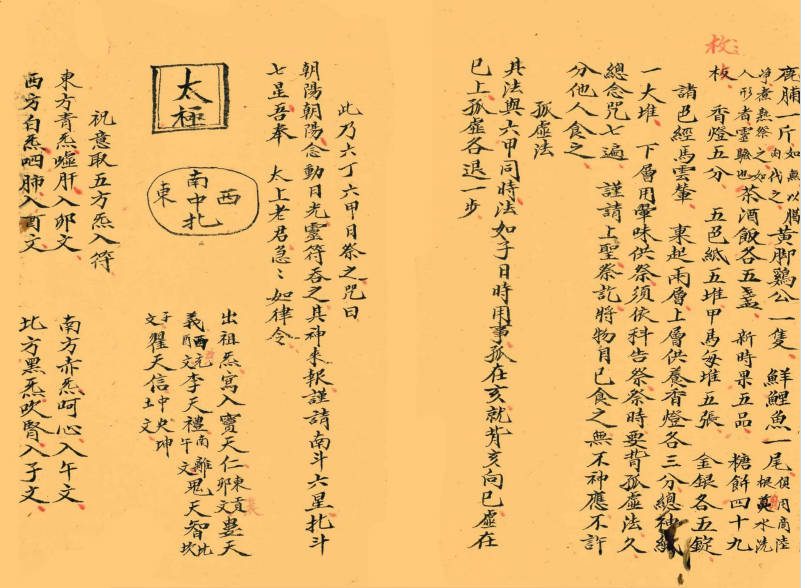 鹿脯一片如無以腊肉代之 黄脚鷄公一隻 鮮鯉魚一尾俱用商陸根水洗
净煮熟祭之如人形者靈驗也 茶酒飯各五盞 新時果五品 糖餅四十九
枚 香燈五分 五色紙五堆甲馬每堆五張 金銀各五錠
請邑經馬雲輦 東起兩層上層供養香燈各三分總神紙
一大堆 下層用葷味供祭須依科告祭祭時要背孤虛法久
總念咒七遍 謹請上聖祭訖將物自己食之無不神應不許
分他人食之
孤虛法
其法與六甲同時法如子日時用事孤在亥就背亥向巳虛在
巳上孤虛各退一步
此乃六丁六甲日祭之咒曰
朝陽朝陽念動日光靈符吞之其神來報謹請南斗六星北斗
七星吾奉 太上老君急〻如律令
太極
東
南中北
西
出祖炁寫入竇天仁東卯文
義酉文李天禮南離午文 鬼天智北坎
子文瞿天信中央坤土文
祝意取五方炁入符
東方青炁噓肝入卯文 南方赤炁呵心入午文
西方白炁呬肺入酉文 北方黑炁吹腎入子文